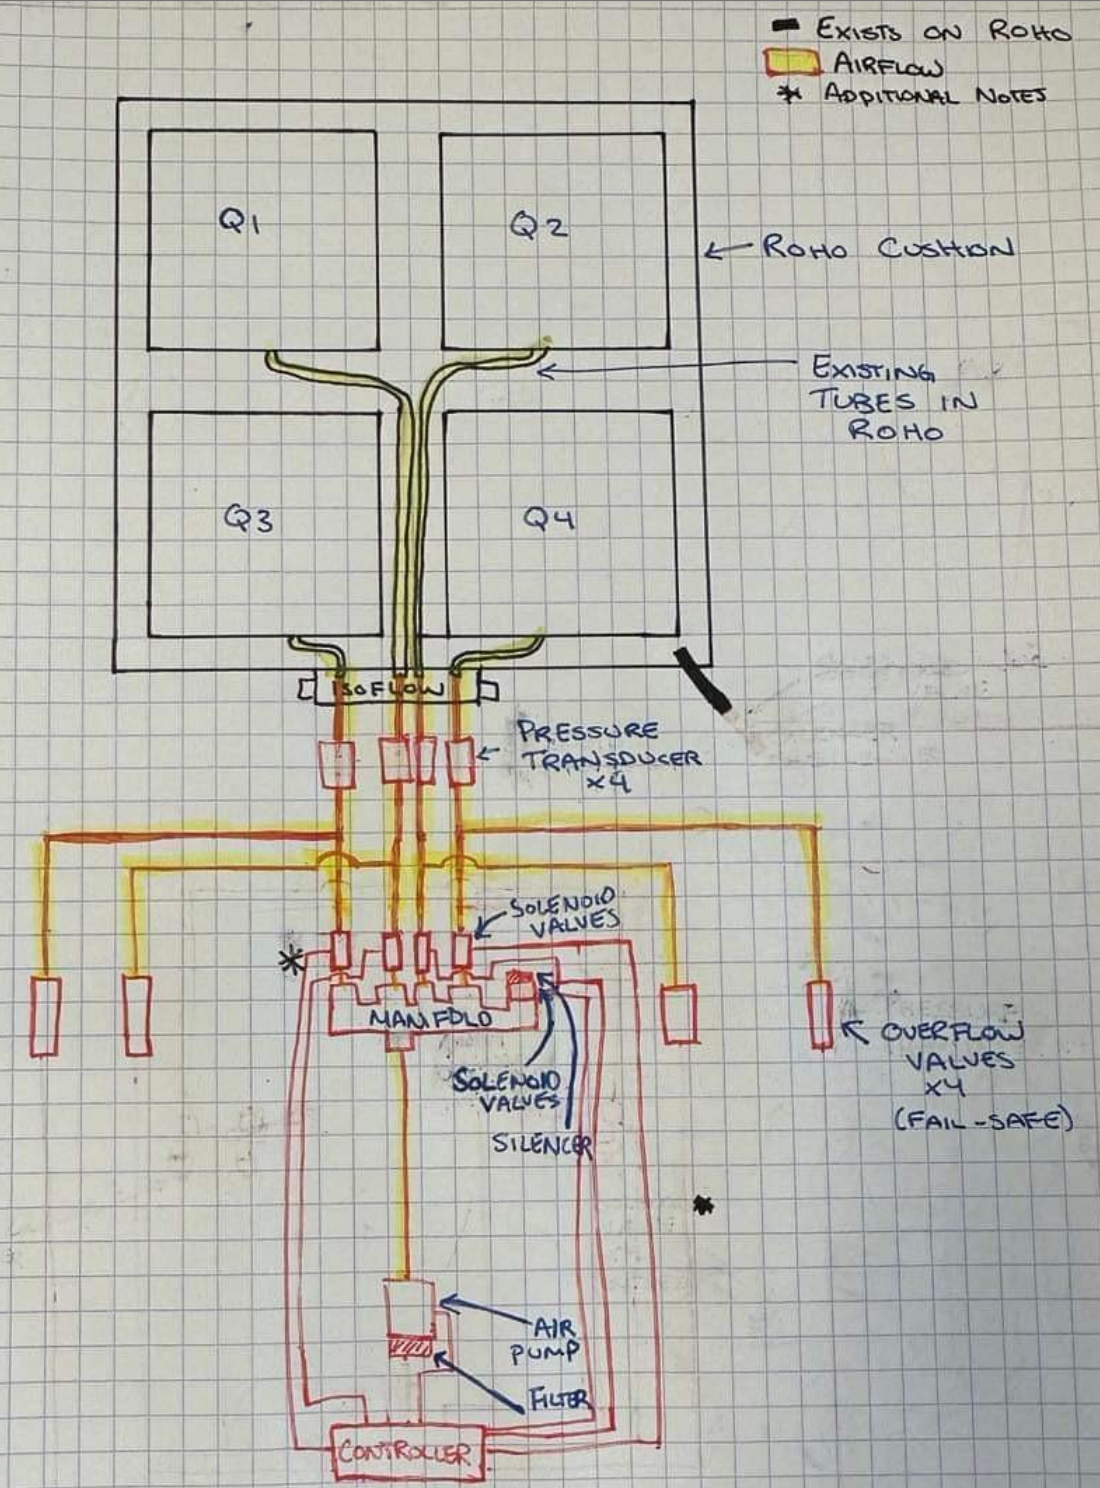 EXISTS ON ROHO
AIRFLOW
* ADDITIONAL NOTES
Q1
Q2
ROHO CUSHION
EXISTING
TUBES IN
ROHO
Q3
Q4
ISOFLOW
PRESSURE
TRANSDUCER
x4
SOLENOID
VALVES
*
MANIFOLD
OVERFLOW
VALVES
x4
(FAIL-SAFE)
SOLENOID
VALVES
SILENCER
*
AIR
PUMP
FILTER
CONTROLLER